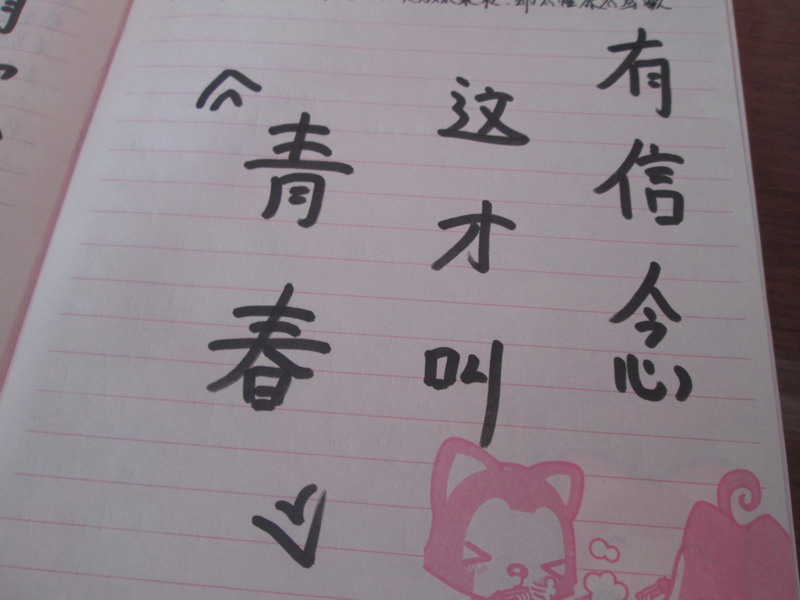 有信念
这才叫
《青春》